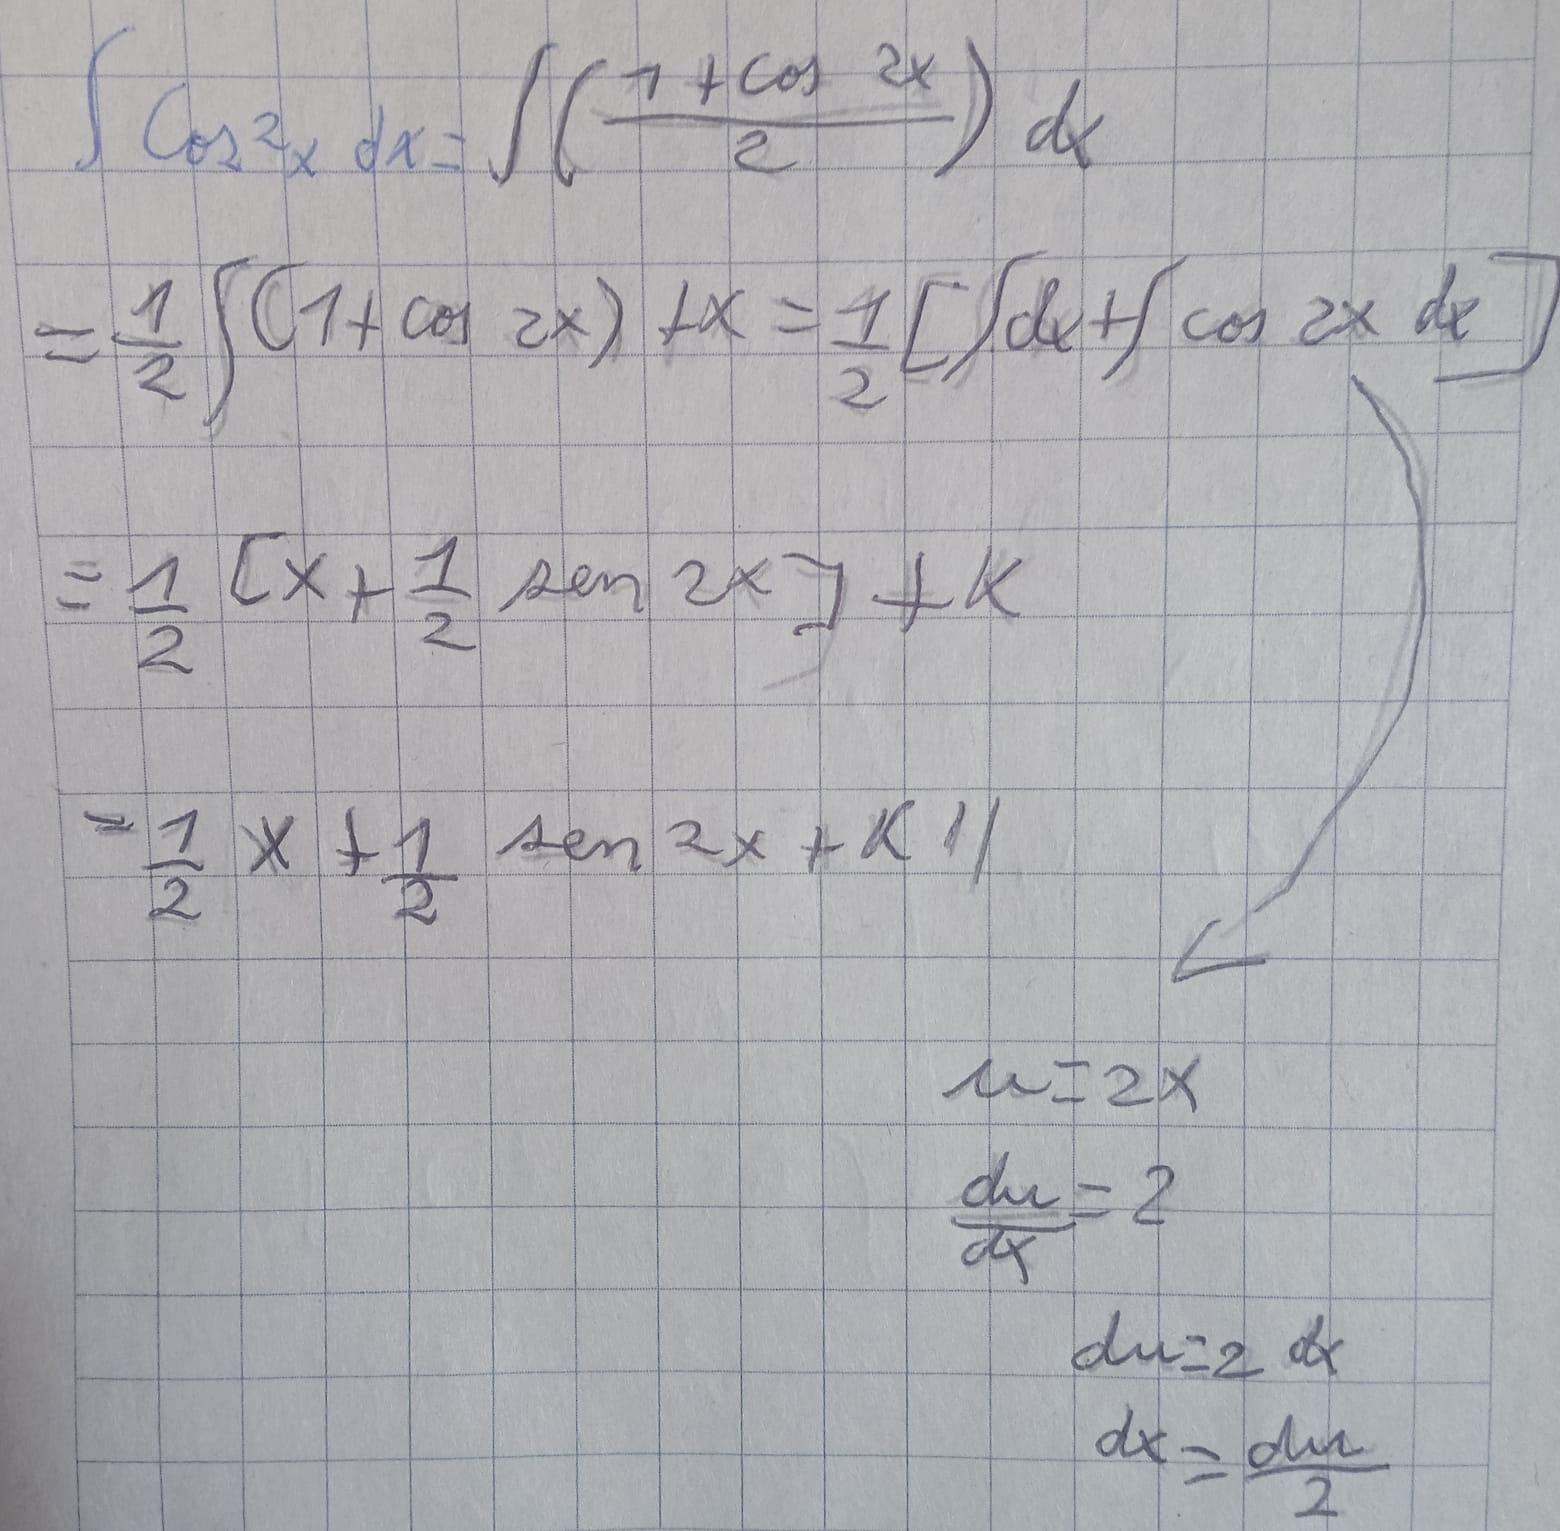 ∫ Cos²x dx = ∫ ( (1 + cos 2x) / 2 ) dx
= 1/2 ∫ (1 + cos 2x) + x = 1/2 [ ∫ dx + ∫ cos 2x dx ]
= 1/2 [ x + 1/2 sen 2x ] + K
= 1/2 x + 1/2 sen 2x + K //
u = 2x
du/dx = 2
du = 2 dx
dx = du/2